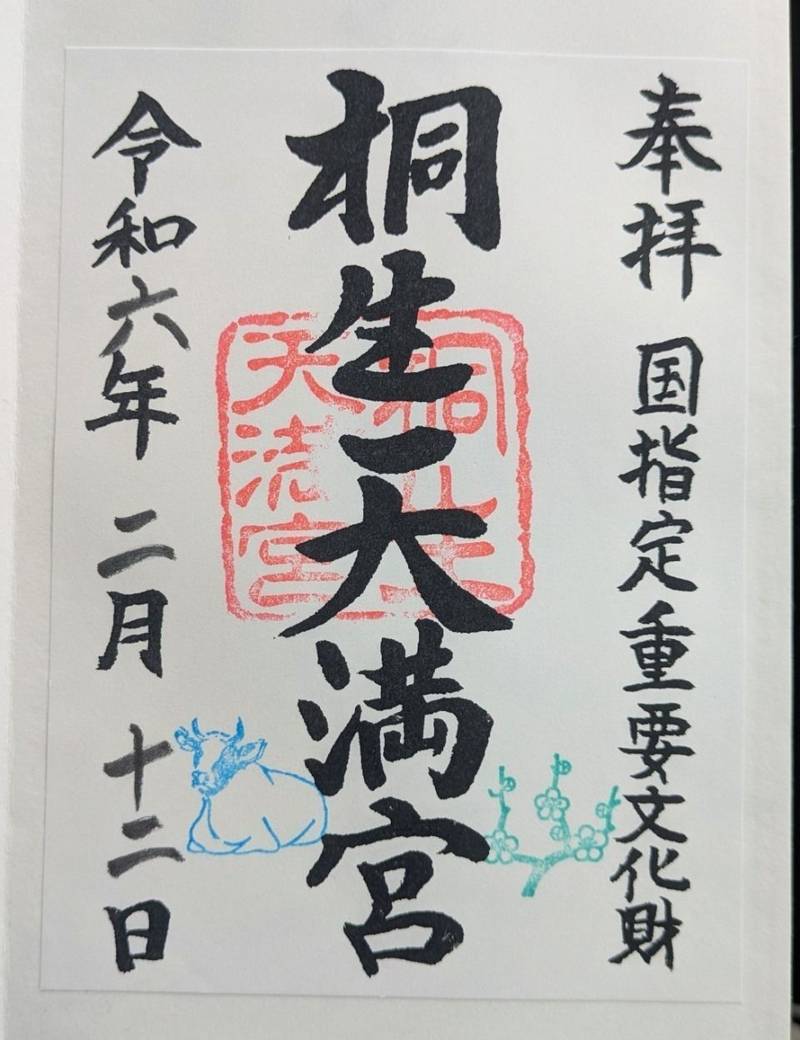 奉拝 国指定重要文化財
桐生天満宮
桐生
天満宮
令和六年 二月 十二日